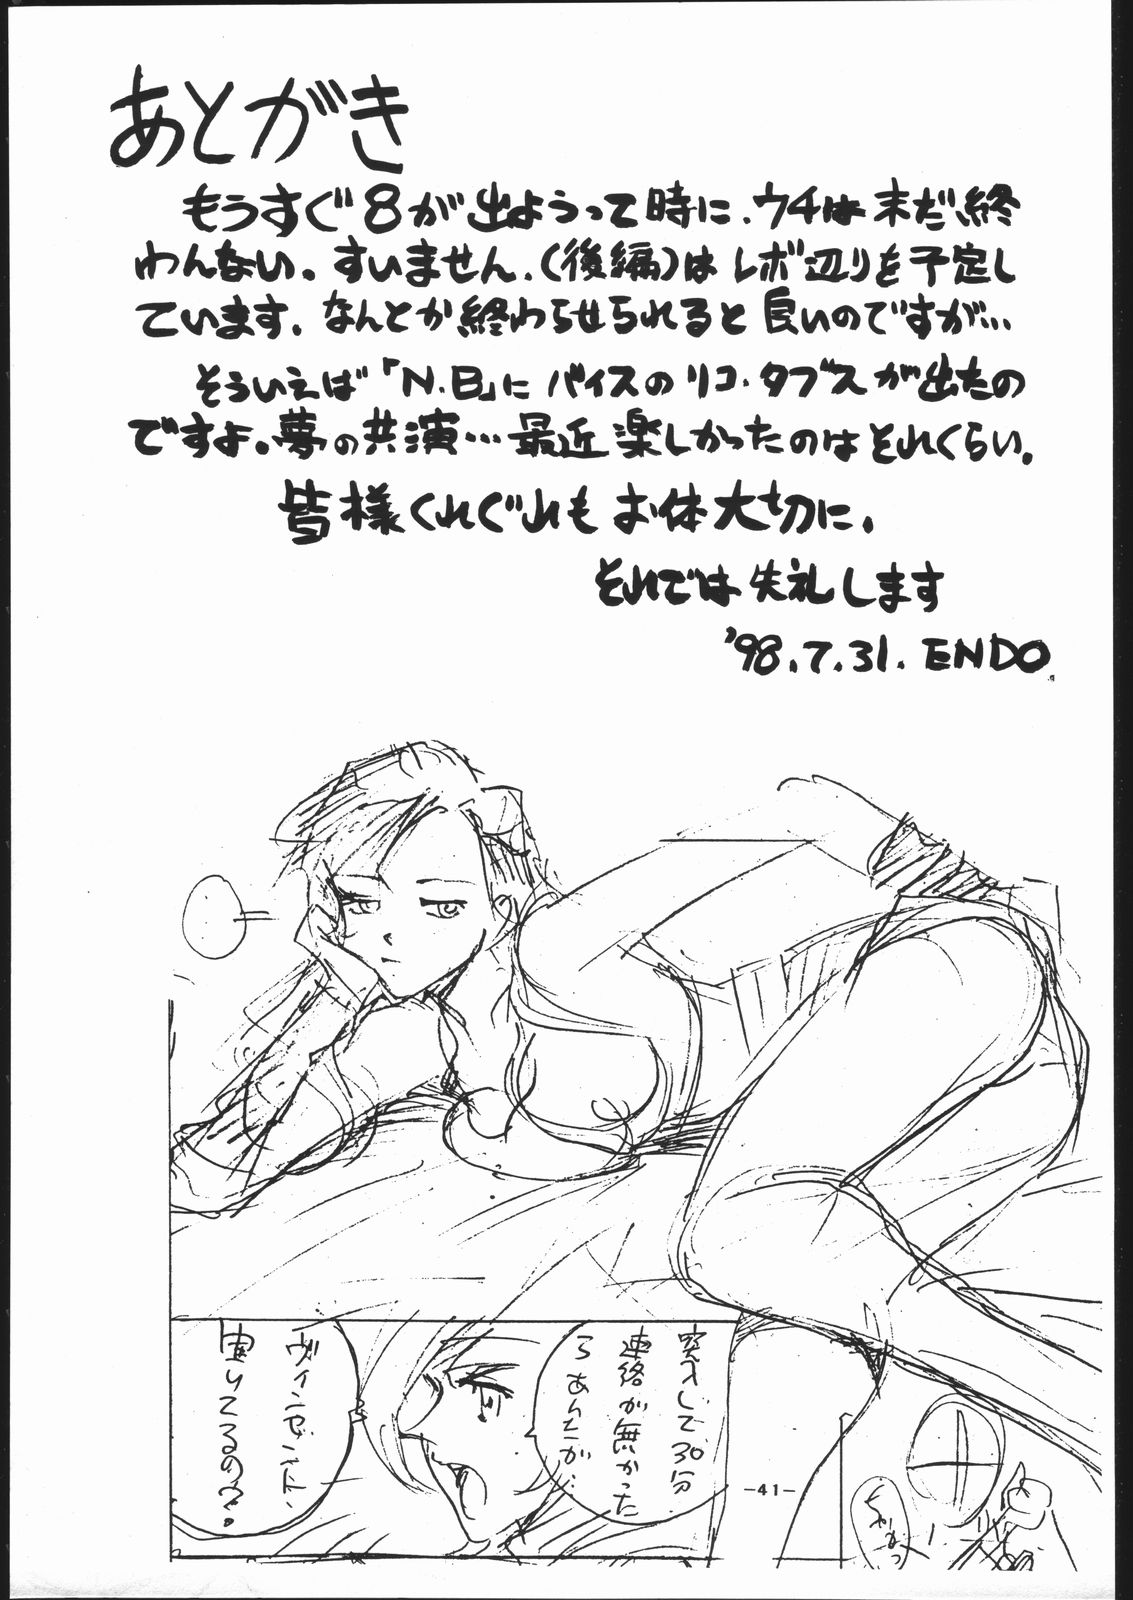 あとがき
もうすぐ8が出ようって時に、ウチは末だ終
わんない。すいません、(後編)はレボ辺りを予定し
ています。なんとか終わらせられると良いのですが…
そういえば「N.B」にバイスのリコ・タブスが出たの
ですよ。夢の共演…最近楽しかったのはそれくらい。
皆様くれぐれもお体大切に。
それでは失礼します
'98.7.31. ENDO
突入して30分
連絡が無かった
らあんたが…
ヴィンセント、
聞いてるの?
-41-